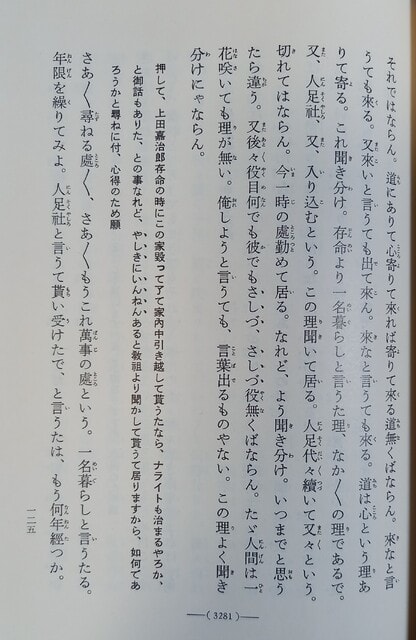 それではならん。道にありて心寄りて來れば寄りて來る道無くばならん。來なと言
うても來る。又來いと言うても出て來ん。來なと言うても來る。道は心という理あ
りて寄る。これ聞き分け。存命より一名暮らしと言うた理、なか／＼の理であるで。
又、人足社、又、入り込むという。この理聞いて居る。人足代々續いて又々という。
切れてはならん。今一時の處勤めて居る。なれど、よう聞き分け。いつまでと思う
たら違う。又後々役目何でも彼でもさしづ、さしづ役無くばならん。たゞ人間は一
花咲いても理が無い。俺しようと言うても、言葉出るものやない。この理よく聞き
分けにゃならん。
押して、上田嘉治郎存命の時にこの家毀って了て家內中引き越して貰うたなら、ナライトも治まるやろか、
と御話もありた、との事なれど、やしきにいんねんあると敎祖より聞かして貰うて居りますから、如何であ
ろうかと尋ねに付、心得のため願
さあ／＼尋ねる處／＼、さあ／＼もうこれ萬事の處という。一名暮らしと言うたる。
年限を繰りてみよ。人足社と言うて貰い受けたで、と言うたは、もう何年經つか。
一二五
(3281)